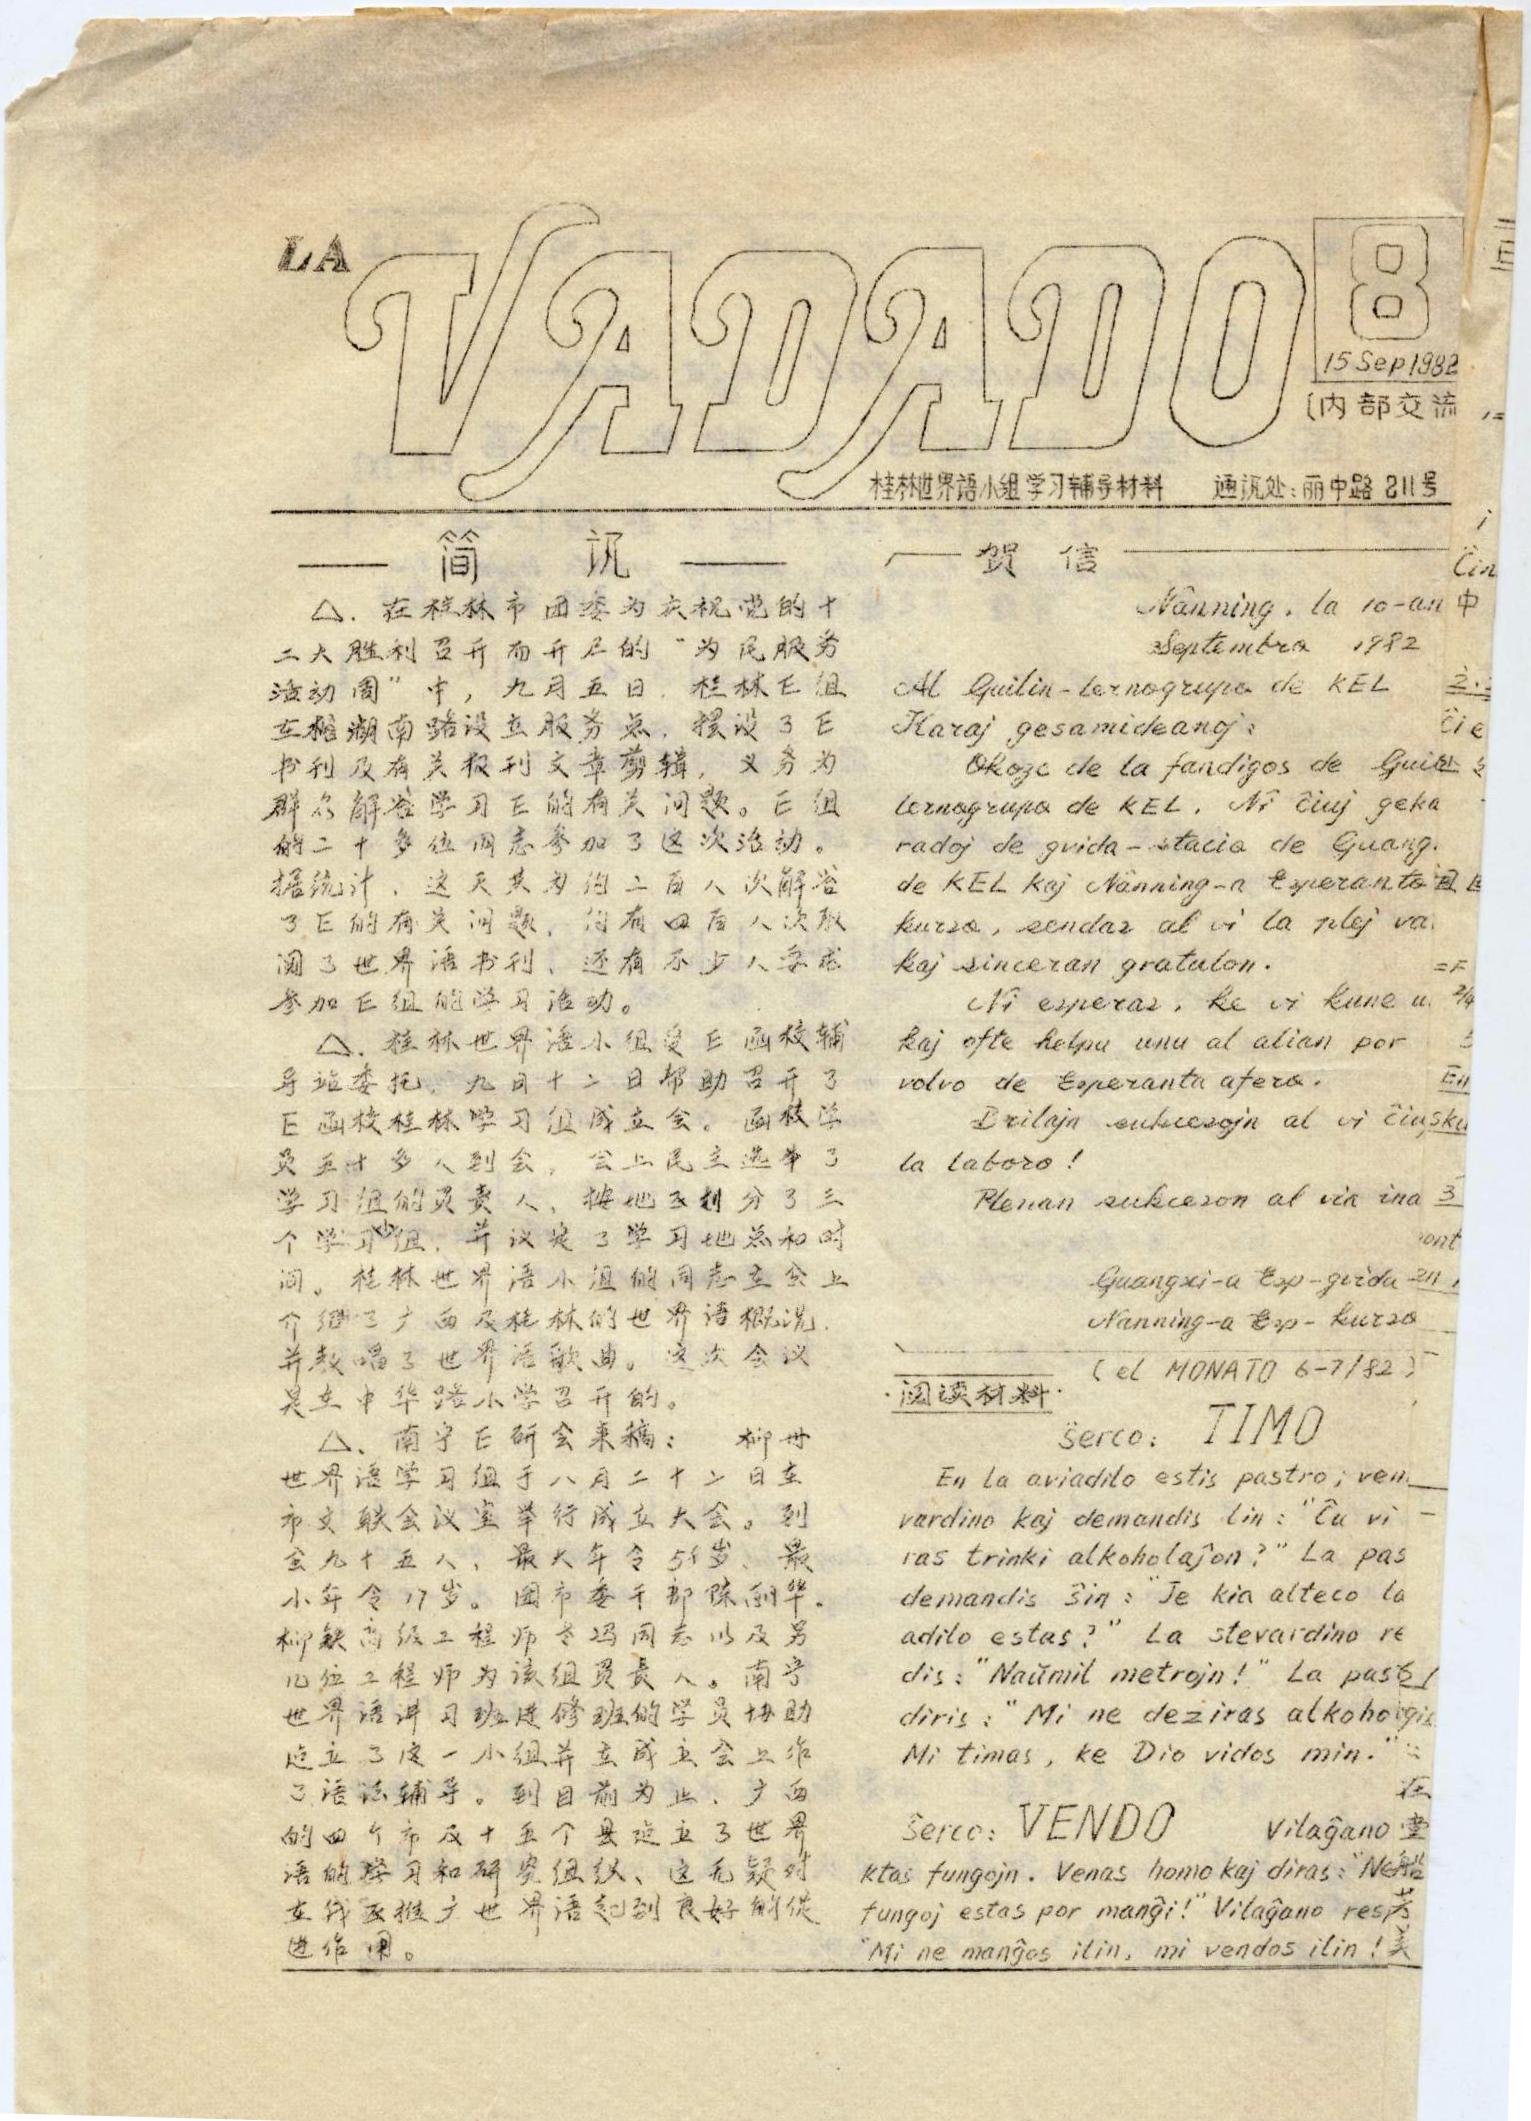 LA VADADO
8
15 Sep 1982
(内部交流
桂林世界语小组学习辅导材料 通讯处:丽中路211号
简 讯
△. 在桂林市团委为庆祝党的十
二大胜利召开而开尸的“为民服务
活动周”中, 九月五日. 桂林E组
在榕湖南路设立服务点, 摆设了E
书刊及有关报刊文章剪辑, 义务为
群众解答学习E的有关问题。E组
的二十多位同志参加了这次活动。
据统计, 这天共为约二百人次解答
了E的有关问题, 约有四百人次取
阅了世界语书刊、还有不少人要求
参加E组的学习活动。
△. 桂林世界语小组受E函校辅
导站委托, 九月十二日帮助召开了
E函校桂林学习组成立会。函校学
员五十多人到会, 会上民主选举了
学习组的负责人、按地区划分了三
个学习小组, 并议定了学习地点和时
间。桂林世界语小组的同志在会上
介绍了广西及桂林的世界语概况.
并教唱了世界语歌曲。这次会议
是在中华路小学召开的。
△、南宁E研会来稿: 柳州
世界语学习组于八月二十二日在
市文联会议室举行成立大会。到
会九十五人、最大年令58岁、最
小年令17岁。团市委干部陈丽华.
柳铁高级工程师 冯同志以及另
几位工程师为该组负责人。南宁
世界语讲习班进修班的学员协助
建立了这一小组并在成立会上作
了语法辅导。到目前为止、广西
的四个市及十五个县建立了世界
语的学习和研究组织、这无疑对
在我区推广世界语起到良好的促
进作用。
贺 信
Nanning, la 10-an
Septembro 1982
Al Guilin-lernogrupo de KEL
Karaj gesamideanoj:
Okaze de la fandigos de Guil
lernogrupo de KEL, Ni ĉiuj geka
radoj de gvida-stacio de Guang.
de KEL kaj Nanning-a Esperanto
kurso, sendas al vi la plej va
kaj sinceran gratulon.
Ni esperas, ke vi kune u
kaj ofte helpu unu al alian por
volvo de Esperanta afero.
Brilajn sukcesojn al vi ĉiu
la laboro!
Plenan sukceson al via ina
Guangxi-a Esp-gvida
Nanning-a Esp-kurso
(el MONATO 6-7/82)
·阅读材料·
ŝerco: TIMO
En la aviadilo estis pastro; ven
vardino kaj demandis lin: "Ĉu vi
ras trinki alkoholaĵon?" La pas
demandis ŝin: "Je kia alteco la
adilo estas?" La stevardino re
dis: "Naŭmil metrojn!" La past
diris: "Mi ne deziras alkoho
Mi timas, ke Dio vidos min."
ŝerco: VENDO Vilaĝano
ktas fungojn. Venas homo kaj diras: "Ne
fungoj estas por manĝi!" Vilaĝano resp
"Mi ne manĝos ilin, mi vendos ilin!